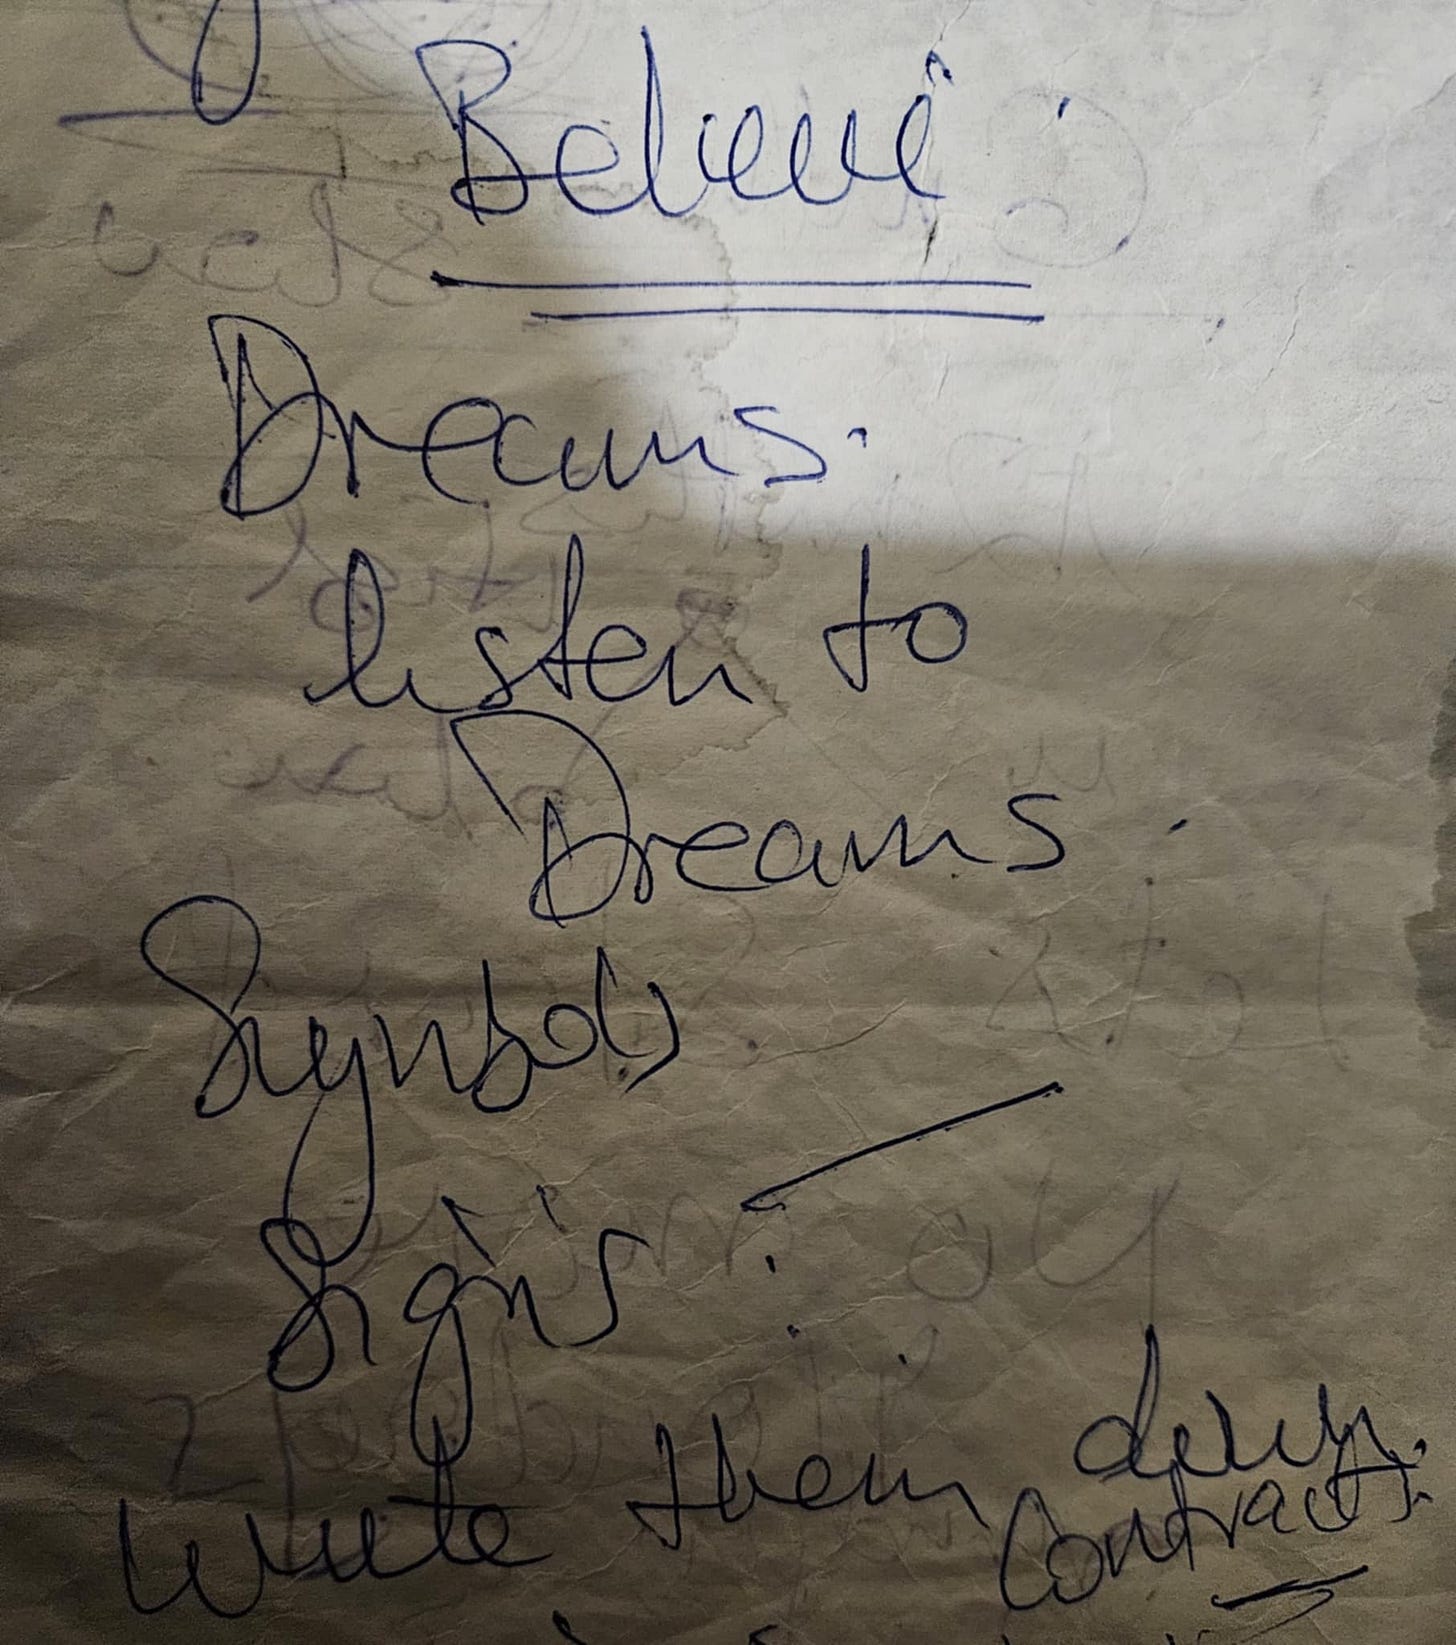 Believe.
Dreams.
listen to
Dreams.
Symbols
Signs
write them down.
Contract.